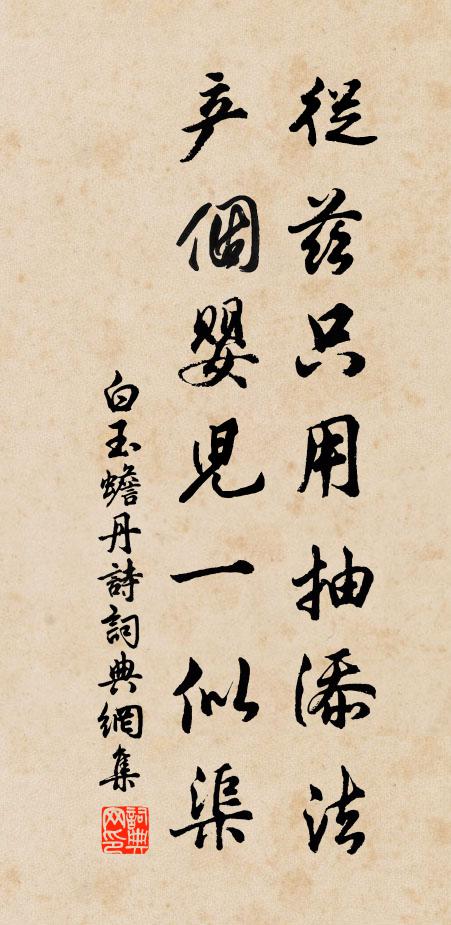 從茲只用抽添法
產個嬰兒一似渠
白玉蟾丹詩詞典網集
詞典網印